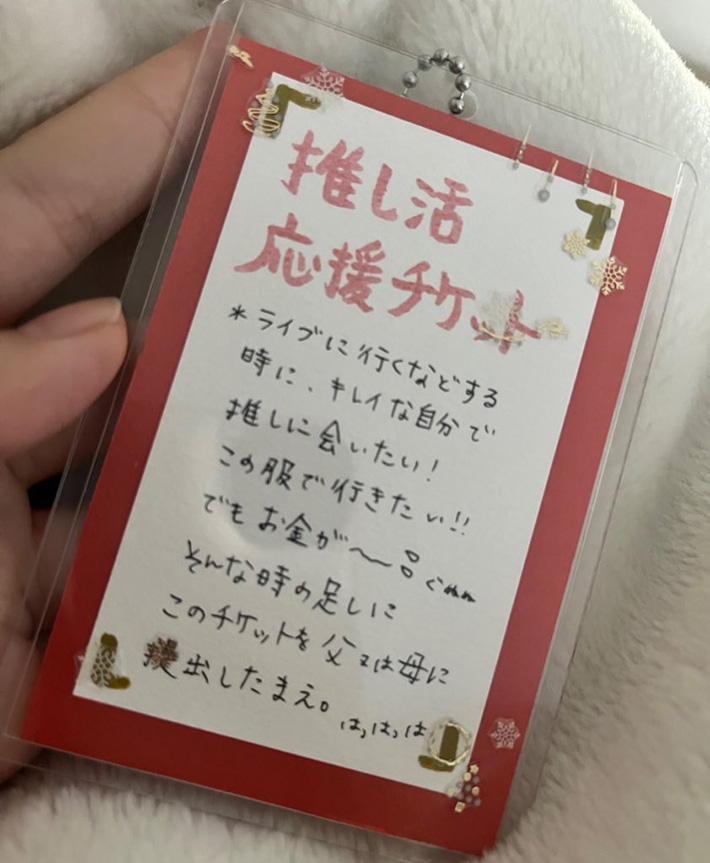 推し活
応援チケット
*ライブに行くなどする
時に、キレイな自分で
推しに会いたい!
この服で行きたい!!
でもお金が〜ぐぬぬ
そんな時の足しに
このチケットを父又は母に
提出したまえ。はっはっは